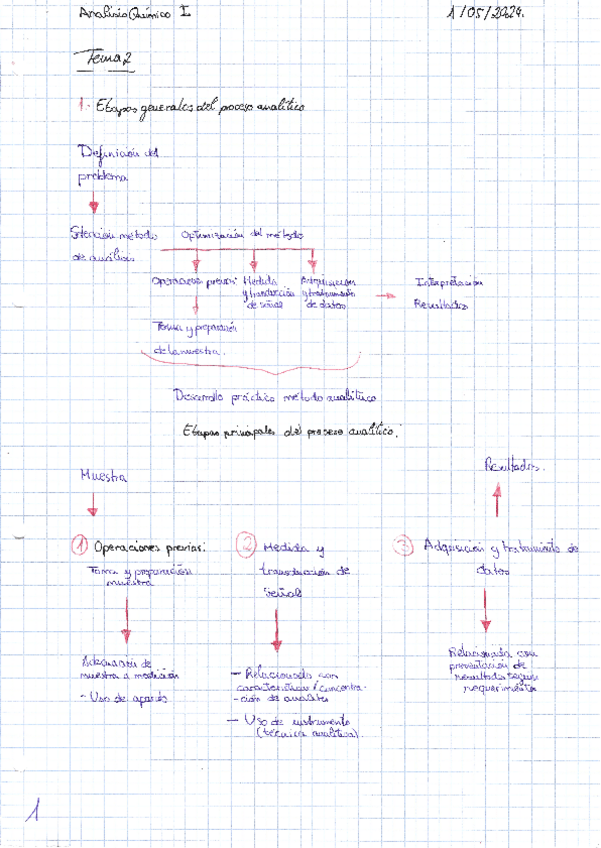 Analisis Químico I
1/05/2024.
Tema 2
1.- Etapas generales del proceso analítico
Definición del
problema
Selección método
de análisis
Optimización del método
Operaciones previas:
Medida
y transducción
de señal
Adquisición
y tratamiento
de datos
Interpretación
Resultados
Toma y preparación
de la muestra.
Desarrollo práctico método analítico
Etapas principales del proceso analítico:
Muestra
Resultados.
1 Operaciones previas:
Toma y preparación
muestra
2 Medida y
transducción de
señal
3 Adquisición y tratamiento de
datos
Adecuación de
muestra a medición
- Uso de aparato
- Relacionado con
características / concentra-
-ción de analitos
- Uso de instrumento
(técnica analítica).
Relacionada con
presentación de
resultados según
requerimientos
1